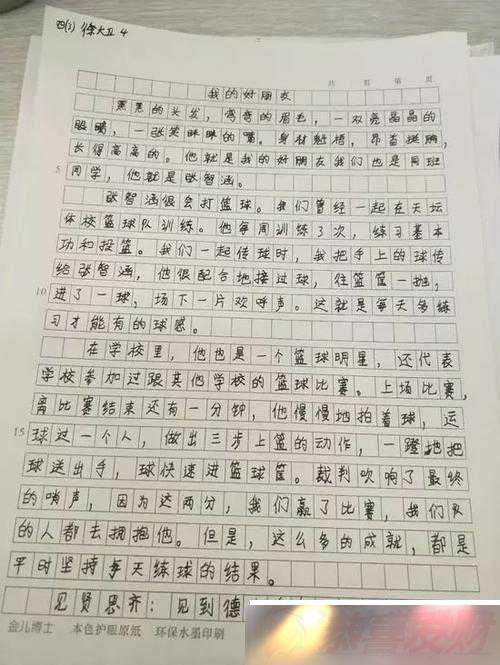 四(3) 徐大卫 4
共 页 第 页
我的好朋友
黑黑的头发，弯弯的眉毛，一双亮晶晶的
眼睛，一张笑眯眯的嘴。身材魁梧，昂首挺胸，
长得高高的。他就是我的好朋友我们也是同班
5 同学，他就是张智涵。
张智涵很会打篮球。我们曾经一起在天坛
体校篮球队训练。他每周训练3次，练习基本
功和投篮。我们一起传球时，我把手上的球传
给张智涵，他很配合地接过球，往篮筐一抛，
10 进了一球，场下一片欢呼声。这就是每天多练
习才能有的球感。
在学校里，他也是一个篮球明星，还代表
学校参加过跟其他学校的篮球比赛。上场比赛，
离比赛结束还有一分钟，他慢慢地拍着球，运
15 球过一个人，做出三步上篮的动作，一蹬地把
球送出手，球快速进篮球筐。裁判吹响了最终
的哨声，因为这两分，我们赢了比赛，我们队
的人都去拥抱他。但是，这么多的成就，都是
平时坚持每天练球的结果。
见贤思齐：见到德
金儿博士 本色护眼原纸 环保水墨印刷
恭喜发财